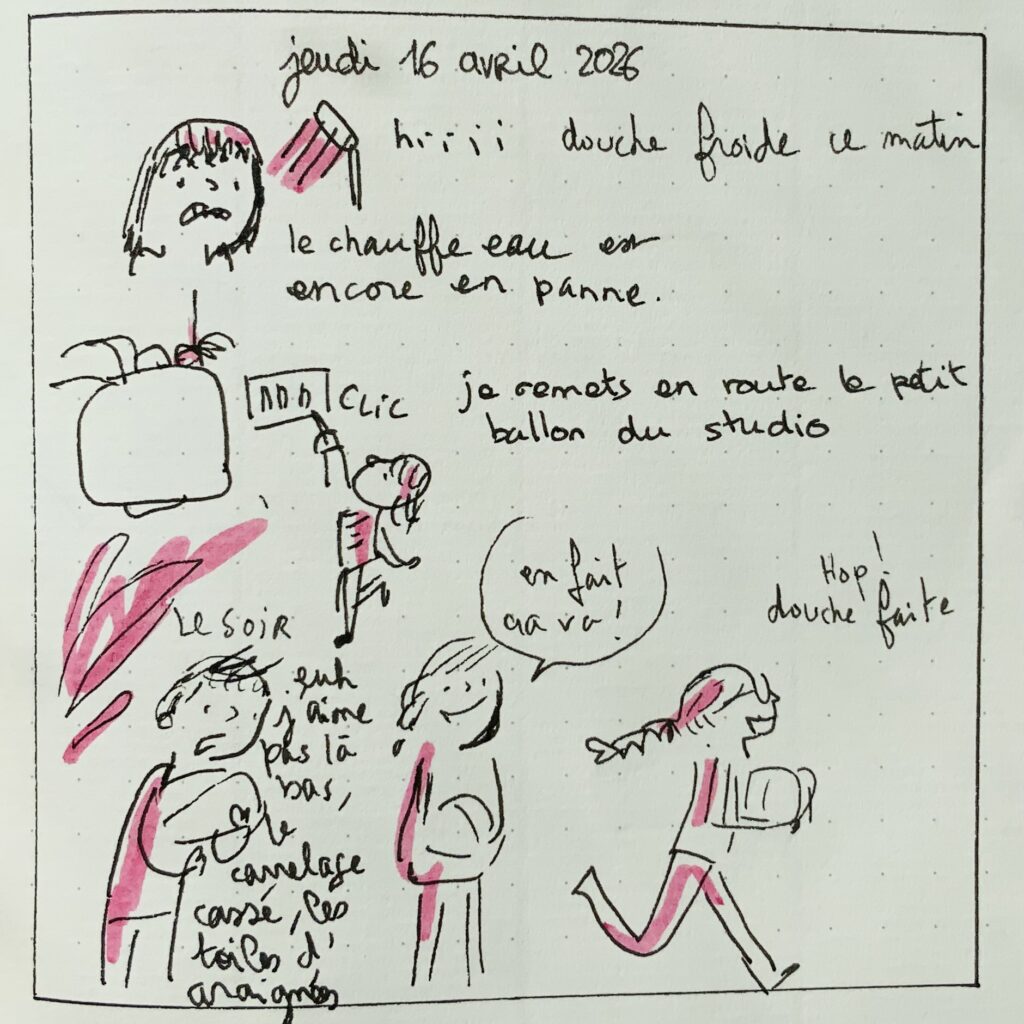 jeudi 16 avril 2026
hiiiii douche froide ce matin
le chauffe eau est
encore en panne.
CLIC
je remets en route le petit
ballon du studio
LE SOIR
euh
j'aime
pas là
bas,
le
carrelage
cassé, les
toiles d'
araignées
en fait
ça va!
Hop!
douche faite